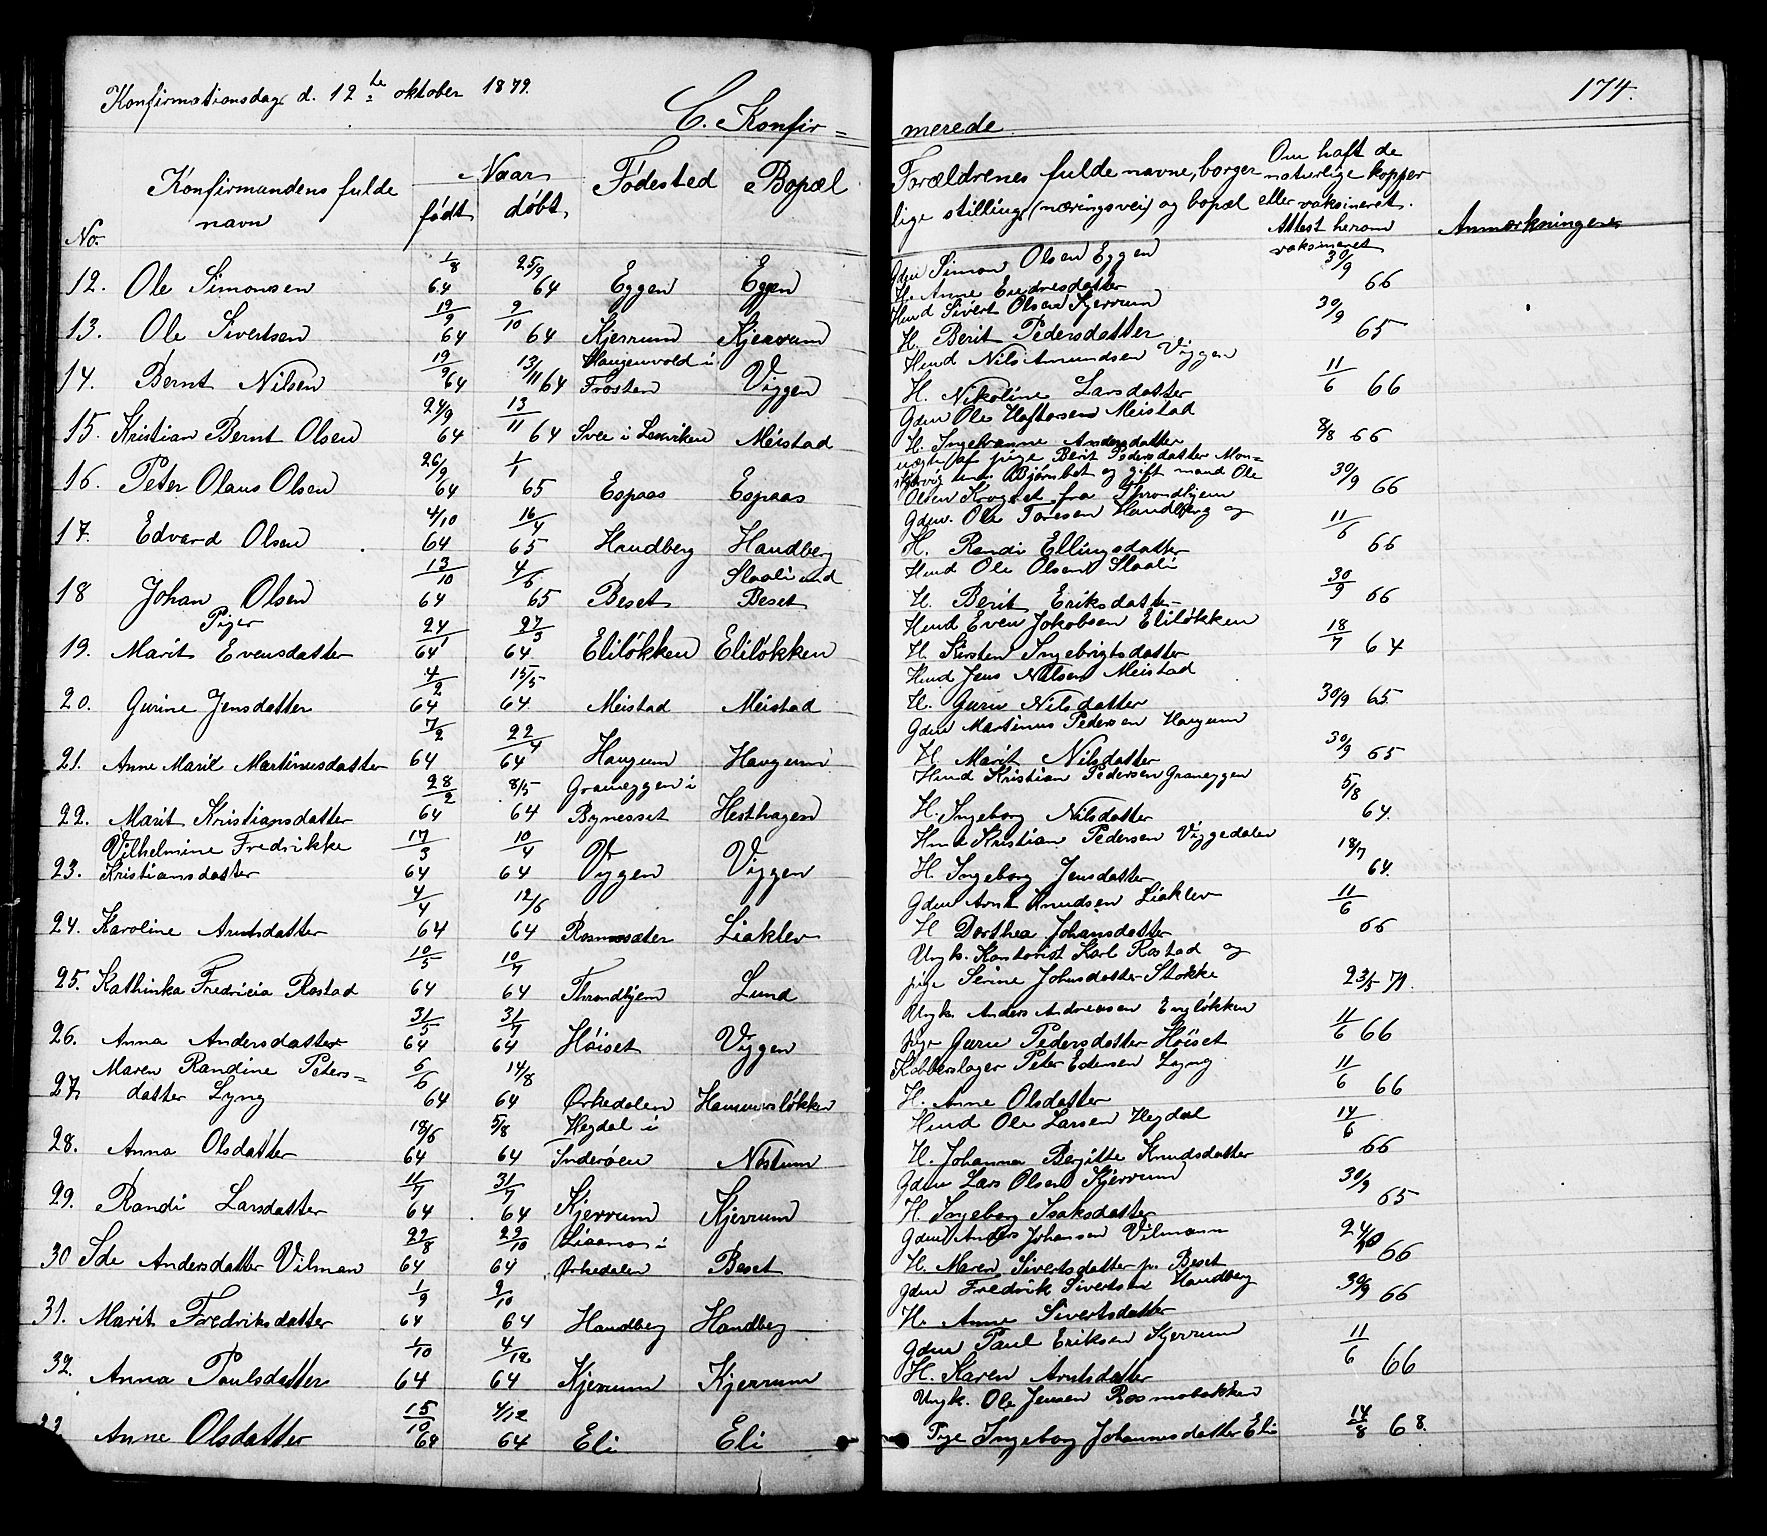 Konfirmationsdag d. 12te oktober 1879.
174.
C. Konfir=
merede
No.
Konfirmandens fulde
navn
Naar
født
døbt
Fødested
Bopæl
Forældrenes fulde navne, borger
lige stilling (næringsvei) og bopæl
Om haft de
naturlige kopper
eller vaksineret.
Attest herom
vaksineret
Anmærkninger
12. Ole Simonsen 1/8 64 25/9 64 Eggen Eggen Gdm Simon Olsen Eggen
H. Anne Endresdatter 30/9 66
13. Ole Sivertsen 19/9 64 9/10 64 Kjerrum Kjerrum Hmd Sivert Olsen Kjerrum
H. Berit Pedersdatter 30/9 65
14. Bernt Nilsen 19/9 64 13/11 64 Haugenvold i
Frosten Viggen Hmd Nils Amundsen Viggen
H. Nikoline Larsdatter 11/6 66
15. Kristian Bernt Olsen 24/9 64 13/11 64 Svee i Lexviken Meistad Gdm Ole Haftorsen Meistad
H. Ingebranne Andersdatter 8/8 66
16. Peter Olaus Olsen 26/9 64 1/1 65 Espaas Espaas uægte af pige Berit Pedersdatter Mon-
Bjørnbet og gift mand Ole
Olsen Krogset fra Throndhjem 30/9 66
17. Edvard Olsen 4/10 64 16/4 65 Handberg Handberg Gdm. Ole Toresen Handberg og
H. Randi Ellingsdatter 11/6 66
18 Johan Olsen 13/10 64 4/6 65 Beset Slaali und
Beset Hmd Ole Olsen Slaali
H. Berit Eriksdatter 30/9 66
Piger
19. Marit Evensdatter 24/1 64 27/3 64 Eliløkken Eliløkken Hmd Even Jokobsen Eliløkken
H. Kirsten Ingebrigtsdatter 18/7 64
20. Gurine Jensdatter 4/2 64 15/5 64 Meistad Meistad Hmd Jens Nilsen Meistad
H. Guru Nilsdatter 30/9 65.
21. Anne Marit Martinusdatter 7/2 64 22/4 64 Haugum Haugum Gdm Martinus Pedersen Haugum
H Marit Nilsdatter 30/9 65
22. Marit Kristiansdatter 28/2 64 8/5 64 Graneggen i
Bynesset Hesthagen Hmd Kristian Pedersen Graneggen
H. Ingeborg Nilsdatter 5/8 64.
23. Vilhelmine Fredrikke
Kristiansdatter 17/3 64 10/4 64 Vyggen Viggen Hmd Kristian Pedersen Viggedalen
H. Ingeborg Jensdatter 18/7 64.
24. Karoline Arntsdatter 4/4 64 12/6 64 Rosmosæter Liaklev Gdm Arnt Knudsen Liaklev
H Dorthea Johansdatter 11/6 66
25. Kathinka Fredricia Rostad 10/5 64 10/7 64 Throndhjem Lund Ungk. Kontorist Karl Rostad og
pige Serine Johnsdatter Stokke 23/5 79.
26. Anna Andersdatter 31/5 64 31/7 64 Höiset Viggen Ungk. Anders Andreassen Engløkken
pige Guru Pedersdatter Höiset 11/6 66
27. Maren Randine Peters=
datter Lyng 6/6 64 14/8 64 Ørkedalen Hammersløkken Kobberslager Peter Estensen Lyng
H. Anne Olsdatter 11/6 66
28. Anna Olsdatter 18/6 64 5/8 64 Hegdal i
Inderøen Nøstum Hmd Ole Larsen Hegdal
H. Johanna Bergitte Knudsdatter 14/6 66
29. Randi Larsdatter 11/7 64 31/7 64 Kjerrum Kjerrum Gdm Lars Olsen Kjerrum
H. Ingeborg Isaksdatter 30/9 65
30 Ide Andersdatter Vilman 22/8 64 23/10 64 Liaamo i
Ørkedalen Beset Gdm Anders Johansen Vilmann
H. Maren Sivertsdatter p. Beset 24/10 66
31. Marit Fredriksdatter 1/9 64 9/10 64 Handberg Handberg Gdm Fredrik Sivertsen Handberg
H. Anne Sivertsdatter 30/9 66
32. Anna Paulsdatter 1/10 64 4/12 64 Kjerrum Kjerrum Gdm Paul Eriksen Kjerrum
H. Karen Arntsdatter 11/6 66
33 Anne Olsdatter 15/10 64 4/12 64 Eli Eli Ungk. Ole Jensen Rosmobakken
Pige Ingeborg Johannesdatter Eli 14/8 68.